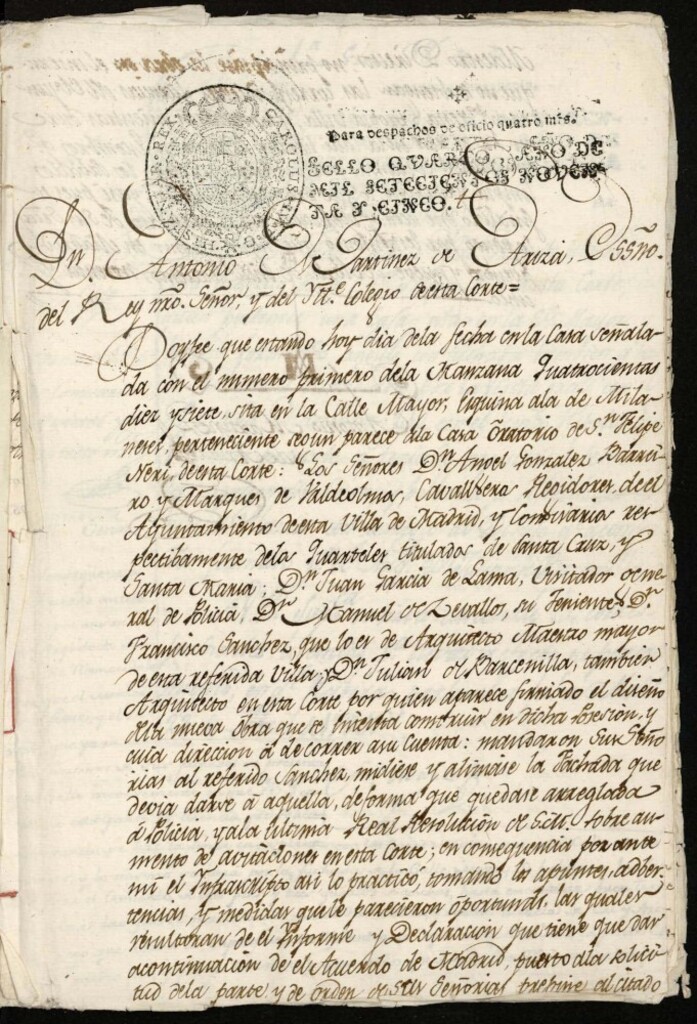 Para despachos de oficio quatro mrs.
SELLO QVARTO, AÑO DE
MIL SETECIENTOS NOVEN
TA Y CINCO.
CAROLUS IV D G HISPANIAR REX
Dn. Antonio Martinez de Ariza, Essño.
del Rey nro. Señor, y del Ytte. Colegio de esta Corte=
Doy fee que estando hoy dia de la fecha en la Casa señala-
da con el numero primero de la Manzana Quatrocientas
diez y siete, sita en la Calle Mayor, Esquina ala de Mila-
neses, perteneciente segun parece ala Casa Oratorio de Sn. Felipe
Neri, de esta Corte: Los Señores Dn. Angel Gonzalez Barrei-
ro y Marques de Valdeolmos, Cavalleros Regidores, de el
Ayuntamiento de esta Villa de Madrid, y Comisarios res-
pectibamente de los Quarteles titulados de Santa Cruz, y
Santa Maria; Dn. Juan Garcia de Lama, Visitador Gene-
ral de Policia, Dn. Manuel de Zevallos, su Teniente; Dn.
Francisco Sanchez, que lo es de Arquitecto Maestro mayor
de esta referida Villa, y Dn. Julian de Barcenilla, tambien
Arquitecto en esta Corte por quien aparece firmado el diseño
de la nueva obra que se intenta construir en dicha Posesion, y
cuia direccion á de correr a su cuenta: mandaron Sus Seño-
rias al referido Sanchez, midiese y alinease la Fachada que
devia darse á aquella, de forma que quedase arreglada
á Policia, y ala ultima Real Resolucion de S.M. sobre au-
mento de avitaciones en esta Corte; en consequencia por ante
mi el Infrascripto asi lo practicó, tomando los apuntes, adber-
tencias, y medidas que le parecieron oportunas, las quales
resultaran de el Informe y Declaracion que tiene que dar
acontinuacion de el Acuerdo de Madrid, puesto ala solici-
tud de la parte, y de orden de sus Señorias prebine al citado